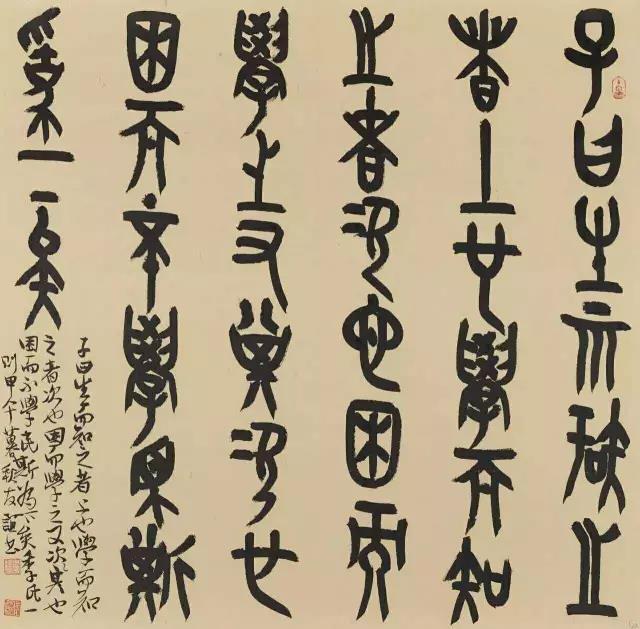 子曰生而知之
者上也學而知
之者次也困而
學之又其次也
困而不學民斯
為下矣
子曰生而知之者上也學而知
之者次也困而學之又次其也
困而不學民斯為下矣季氏一
則甲午暮秋友書